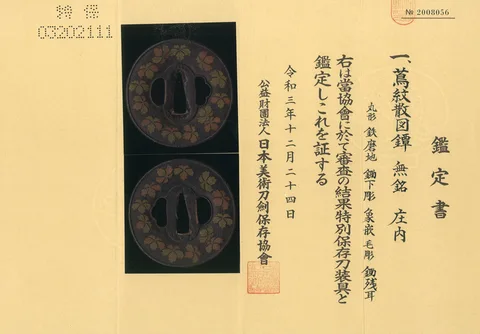 鑑定書
一、蔦紋散図鐔 無銘 庄内
丸形 鉄磨地 鋤下彫 象嵌 毛彫 鋤残耳
右は當協會に於て審査の結果特別保存刀装具と
鑑定しこれを証する
令和三年十二月二十四日
公益財團法人 日本美術刀剣保存協會
№ 2008056
特保
03202111